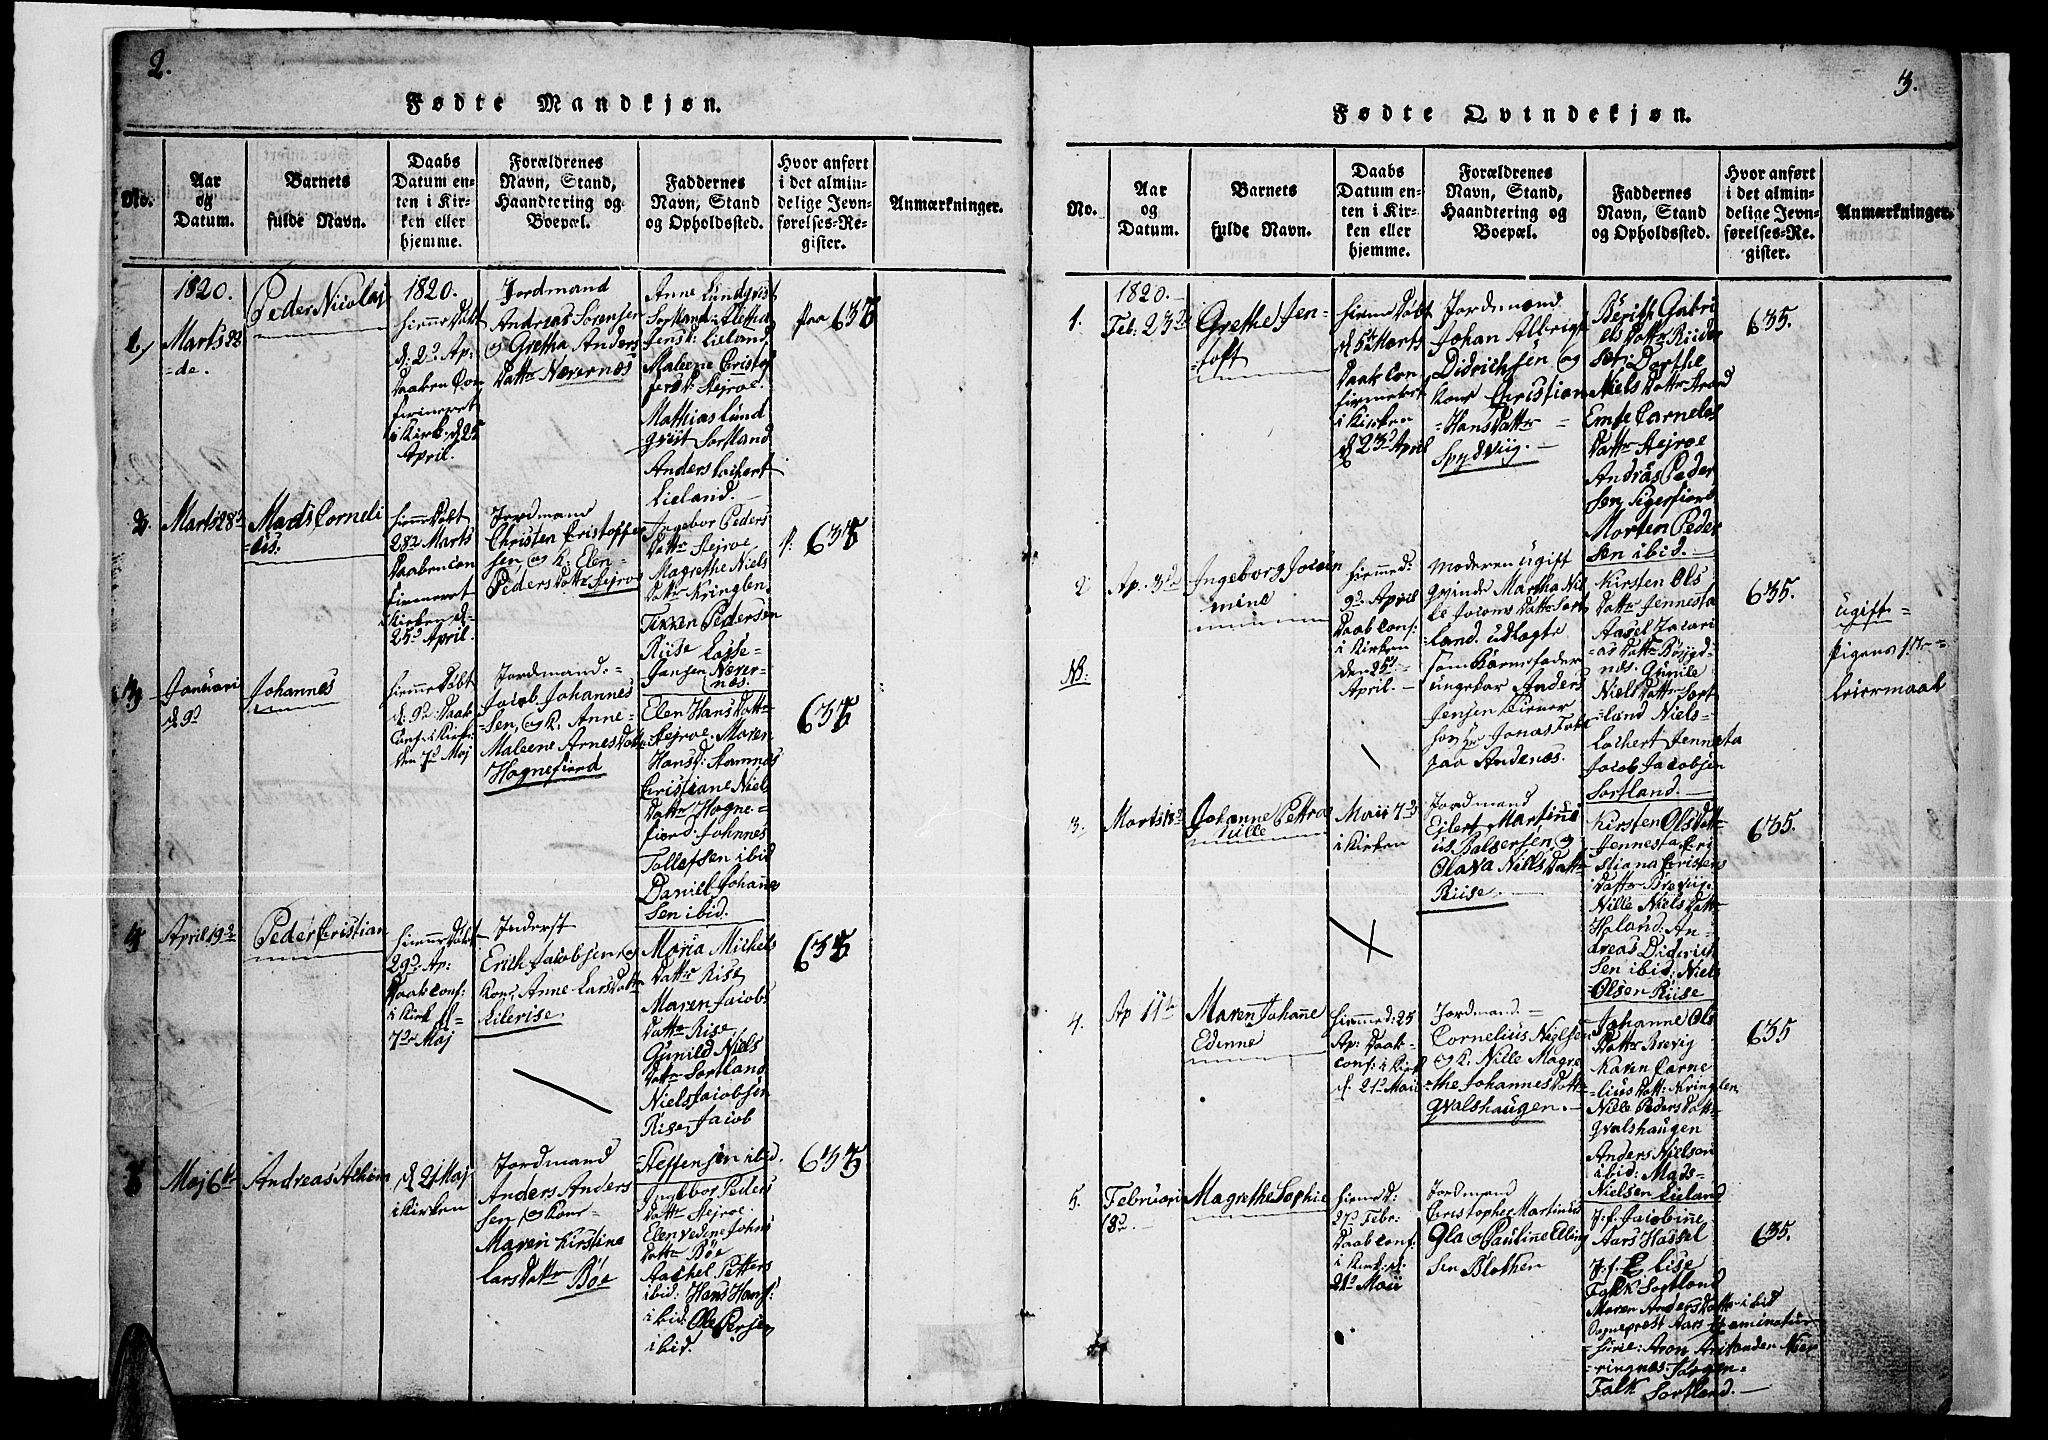 2.
Fødte Mandkjøn.
No.
Aar
og
Datum.
Barnets
fulde Navn.
Daabs
Datum en-
ten i Kir-
ken eller
hjemme.
Forældrenes
Navn, Stand,
Haandtering og
Boepæl.
Faddernes
Navn, Stand
og Opholdssted.
Hvor anført
i det almin-
delige Jevn-
førelses-Re-
gister.
Anmærkninger.
1820.
Marts 22
=de.
Peder Nicolai
1820.
hjemmedøbt
d: 2d Ap:
Daaben Con
firmeret
i Kirk: d 25
April.
Jordmand
Andreas Sörensen
og Gretha Anders
Dattr Nævernæs
Anne Lundqvist
Sortland:
Lieland
Maleene Christof
Stejroe.
Mathias Lund
qviist Sortland
Anders Lockert
Lieland.
paa 635
2.
Marts 28d
Mads Corneli
=us.
hjemmedøbt
28d Marts
Daaben con
firmeret
Kirken d=
25d April.
Jordmand
Christen Cristoffer
sen, og K: Elen
Peders Dattr Stejroe
Ingebor Peders
Dattr Stejroe
Magrethe Niels
Dattr Kringlen
Peders
Riise Lasse
Jansen Næver-
næs.
p: 635
3
Januari
d 9d
Johannes
hjemmedøbt
d: 9d Daab
Conf. i Kirk:
den 7d Maj
Jordmand.=
Jacob Johannes
sen, og K. Anne=
Maleene Arnes Datt
Hognefiord
Elen Hans Dattr
Stejroe. Maren
Hansd: Hamnæs
Cristiane Niels
Dattr Hogne=
fiord. Johnnes
Tollefsen ibid
Daniel Johanne
sen ibid.
635
4
April 19d
Peder Cristian
hjemmedøbt
29d Ap:
Daab conf:
i Kirk d=
7d Maj
Inderst
Erich Jacobsen og
Kone, Anne Lars Datter
Lilerise
Maria Michels
Dattr Rise
Maren Jacobs
Dattr Rise
Gunild Niels
Dattr Sortland
Niels Jacobsen
Rise, Jacob
Steffensen ibid.
635
5
Maj 6te
Andreas
d 21 Maj
i Kirken
Jordmand
Anders Anders
sen, og Kone
Maren Kirstine
Lars Dattr Böe
Ingebor Peders
Dattr Stejroe
Elen vedine Johns
Dattr Böe
Rachel Petters
ibid: Hans Hans:
ibid. Ole Persen
ibid.
635
3.
Fødte Qvindekjøn.
No.
Aar
og
Datum.
Barnets
fulde Navn.
Daabs
Datum en-
ten i Kir-
ken eller
hjemme.
Forældrenes
Navn, Stand,
Haandtering og
Boepæl.
Faddernes
Navn, Stand
og Opholdssted.
Hvor anført
i det almin-
delige Jevn-
førelses-Re-
gister.
Anmærkninger.
1820.
1.
Feb: 23d
Grethe Jen-
=toft
hjemmedøbt
d 5te Marts
Daab Con
firmeret
i Kirken
d 23d April
Jordmand
Johan Albrigt
Didrichsen og
Kone Christian
=Hans Dattr=
Spydviig.
Berith Gabri
els Dattr
Dorthe
Niels Dattr
Cornelas
Dattr Stejroe
Andrias Peder
sen Sigerfiord
Morten Peder
sen ibid.
635.
2
Ap: 3d
Ingeborg Jocum
mine
hjemmed:
9d April
Daab Conf:
i Kirken
den 25d
April.
Moderen ugift
qvinde Martha Nil
le Jocoms Dattr Sort
land. udlagte
som Barnefader
ungekar Anders
Jensen
hos Jonas Falk
paa Andenæs.
Kirsten Ols
Dattr Jennesta
Aasel Zacari
as Dattr Böygd
næs. Gunile
Niels Dattr Sort
land Niels=
Lochert Jennesta
Jacob Jacobsen
Sortland.
635.
ugift=
Pigens 1ste
Leiermaal
NB:
3.
Marts 18d
Johanne Pettra
Nille
Maii 7d
i Kirken
Jordmand
Ejlert Martini
us Balsersen og
Olava Niels Dattr
Riise.
Kirsten Ols Dattr
Jennesta Cri
stiana Cristens
Dattr Brevig.
Nille Niels Dattr
Holand: An
dreas Diderich
sen ibid: Niels
Olsen Riise
635.
4.
Ap 11te
Maren Johanne
Edinne
hjemmed: 25
Ap: Daab
conf: i Kirk
d. 21d Maii
Jordmand.=
Cornelius Nielsen
og K: Nille Magre
the Johannes Datt
Qvalshaugen.
Johanne Ols
Dattr Brevig
Karen Corne
lius Datt: Kringlen
Nille Peders Datt
Qvalshaugen
Anders Nielsen
ibid: Mats-
Nielsen Lieland
635
5.
Februari
18d
Magrethe Sophie
hjemmed:
27d Febr:
Daab Conf:
i Kirk: d.
21d Maii
Jordmand
Cristopher Martinus
Gla og Pauline Elling
sen Blokken
J.f. Jacobine
Aars Hassel
J.f. Elise
Falk Sortland
Maren Anders Dattr ibid
Sogneprest Aars
Aron
Falk Sortland.
635.